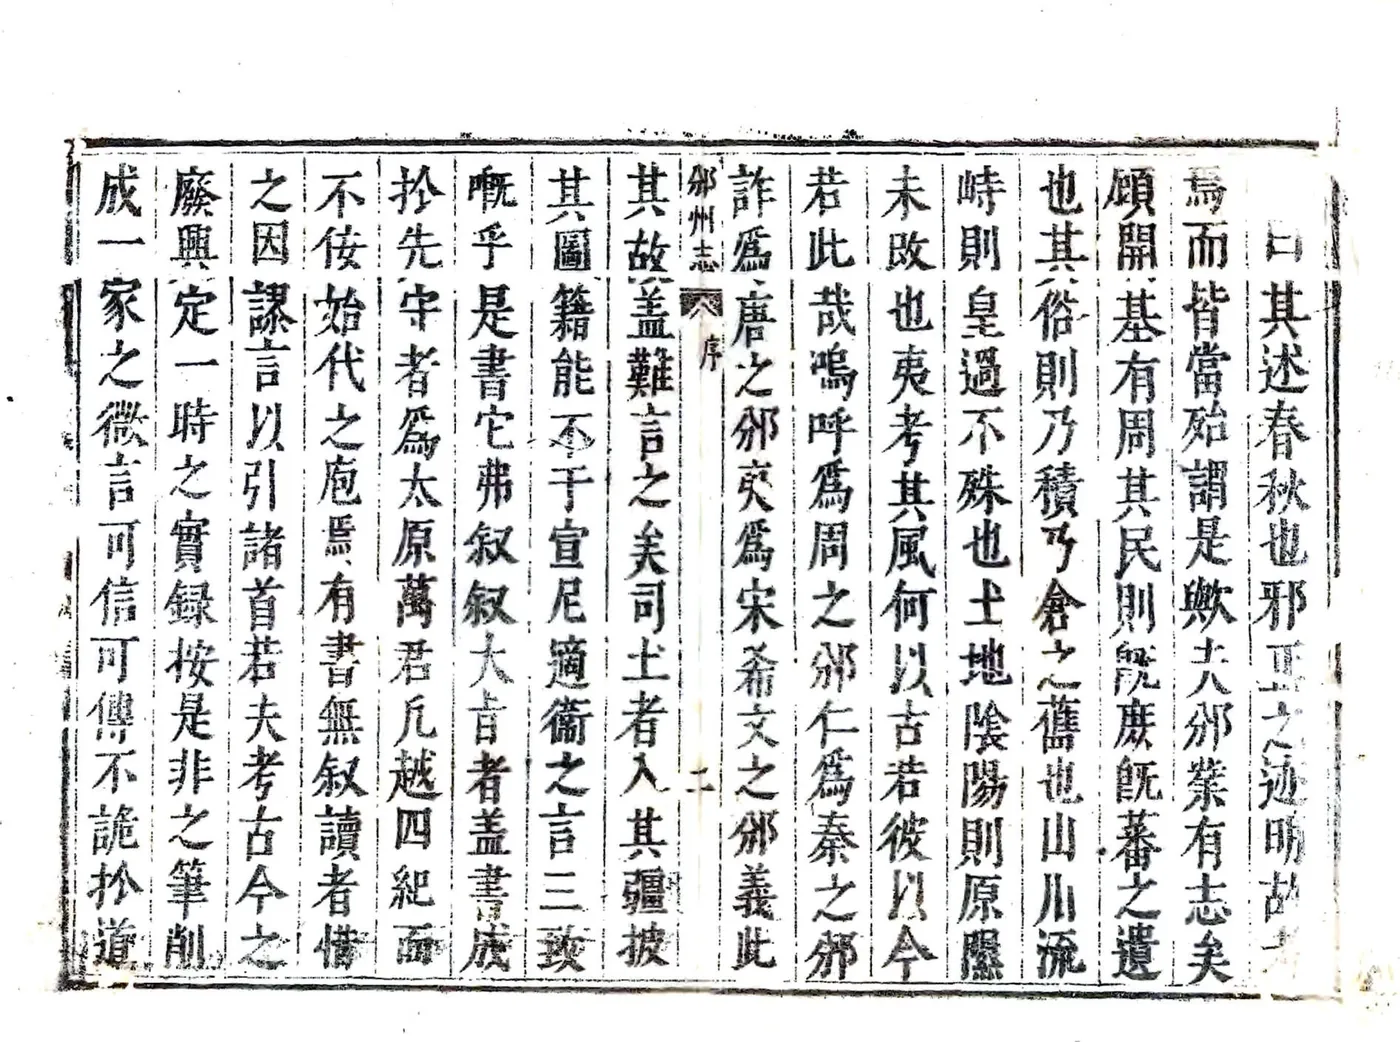 曰其述春秋也邪正之迹明故考
焉而皆當殆謂是歟夫邠業有志矣
顧開基有周其民則既庶既蕃之遺
也其俗則乃積乃倉之舊也山川流
峙則皇過不殊也土地陰陽則原隰
未改也夷考其風何以古若彼以今
若此哉嗚呼爲周之邠仁爲秦之邠
詐爲唐之邠爽爲宋希文之邠義此
邠州志 序 二
其故盖難言之矣司土者入其疆披
其圖籍能不干宣尼適衞之言三致
嘅乎是書它弗叙叙大㫖者盖書成
扵先守者爲太原萬君凢越四紀而
不侫始代之庖焉有書無叙讀者惜
之因謬言以引諸首若夫考古今之
廢興定一時之實録按是非之筆削
成一家之微言可信可傳不詭扵道